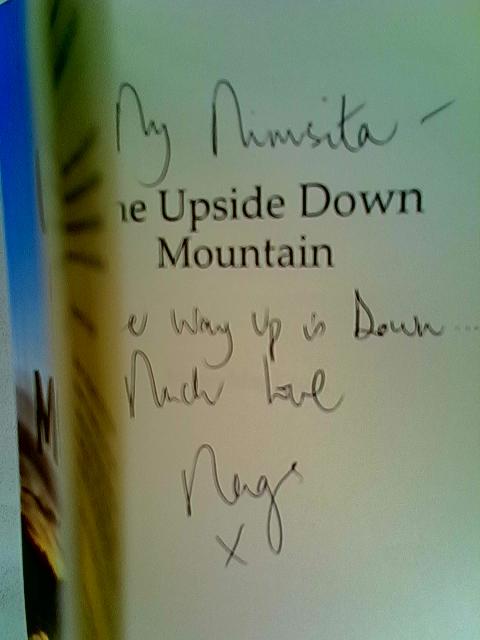 My Nimsita -
he Upside Down
Mountain
e Way Up is Down ...
Much Love
Mags
X